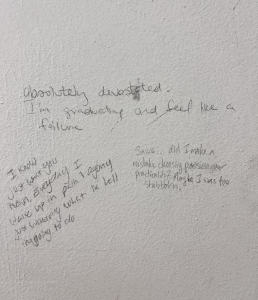 absolutely devastated.
I'm graduating and feel like a
failure
I know
just what you
mean. Everyday I
wake up in pain & agony
not knowing what the hell
im going to do
Same... did I make a
mistake choosing passion over
practicality? Maybe I was too
stubborn.